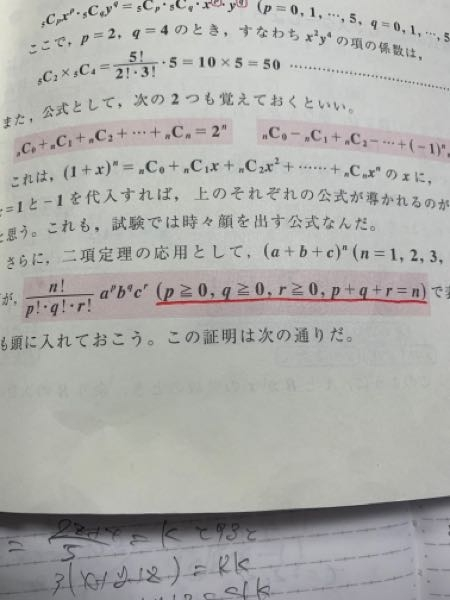 ₅Cₚxᵖ・₅C_q y^q = ₅Cₚ・₅C_q・xᵖ・y^q (p=0, 1, …, 5, q=0, 1, …, 5
ここで，p=2，q=4のとき，すなわち x²y⁴ の項の係数は，
₅C₂×₅C₄=5!/(2!・3!)・5=10×5=50 ……………
また，公式として，次の2つも覚えておくといい。
ₙC₀+ₙC₁+ₙC₂+…+ₙCₙ=2ⁿ ₙC₀−ₙC₁+ₙC₂−…+(−1)ⁿ
これは，(1+x)ⁿ=ₙC₀+ₙC₁x+ₙC₂x²+……+ₙCₙxⁿ の x に，
=1と−1を代入すれば，上のそれぞれの公式が導かれるのが
と思う。これも，試験では時々顔を出す公式なんだ。
さらに，二項定理の応用として，(a+b+c)ⁿ (n=1, 2, 3,
が，n!/(p!・q!・r!) aᵖb^qcʳ (p≧0, q≧0, r≧0, p+q+r=n) で
も頭に入れておこう。この証明は次の通りだ。
= K
= RK